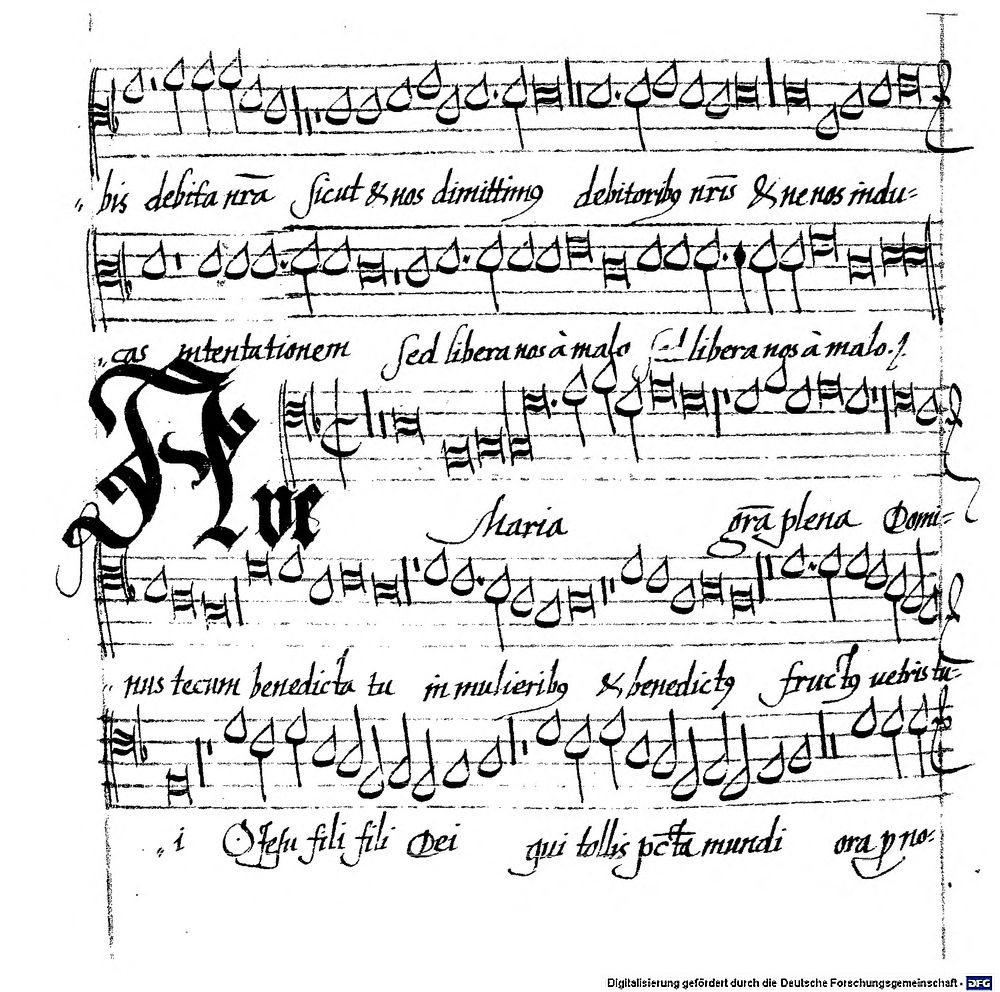 bis debita nr̄a sicut & nos dimittimꝰ debitoribꝰ nr̄is & ne nos indu-
cas in tentationem sed libera nos à malo sed libera nos à malo.
Ave Maria gr̄a plena Domi-
nus tecum benedicta tu in mulieribꝰ & benedictꝰ fructꝰ vētris tu-
i O Jesu fili fili Dei qui tollis pctā mundi ora p no-
Digitalisierung gefördert durch die Deutsche Forschungsgemeinschaft - DFG